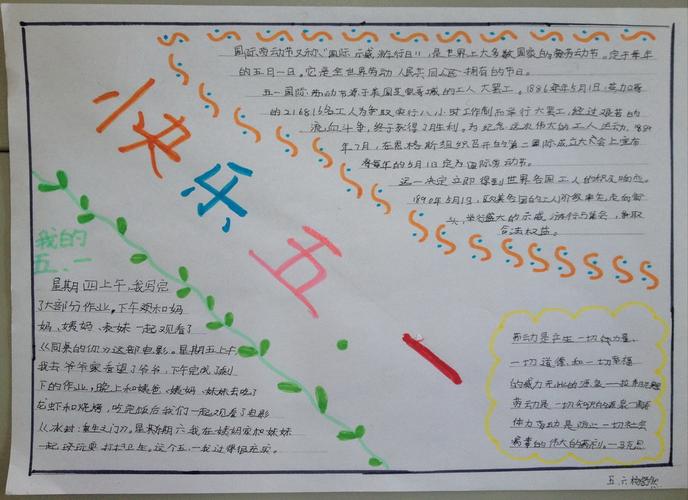 国际劳动节又称“国际示威游行日”,是世界上大多数国家的劳动节。定于每年
的五月一日。它是全世界劳动人民共同拥有的节日。
五一国际劳动节源于美国芝加哥城的工人大罢工。1886年5月1日,芝加哥
的216816名工人为争取实行八小时工作制而举行大罢工,经过艰苦的
流血斗争,终于获得了胜利。为纪念这次伟大的工人运动,1889
年7月,在恩格斯组织召开的第二国际成立大会上宣布
将每年的5月1日定为国际劳动节。
这一决定立即得到世界各国工人的积极响应。
1890年5月1日,欧美各国的工人阶级率先走向街
头,举行盛大的示威游行与集会,争取
合法权益。
快乐五·一
我的
五.一
星期四上午,我写完
了大部分作业。下午我和妈
妈、姨妈、表妹一起观看了
《同桌的你》这部电影。星期五上午
我去爷爷家看望了爷爷,下午完成
下的作业,晚上和姨爸、姨妈、妹妹去吃了
龙虾和烧烤,吃完饭后我们一起观看了电影
《冰封:重生之门》。星期六我在姨妈家和妹妹
一起玩耍打扫卫生。这个五一我过得很充实。
劳动是产生一切力量、
一切道德和一切幸福
的威力无比的源泉——拉
劳动是一切知识的源泉——
体力劳动是防止一切社会
病毒的伟大的消毒剂。——马克思
五.六